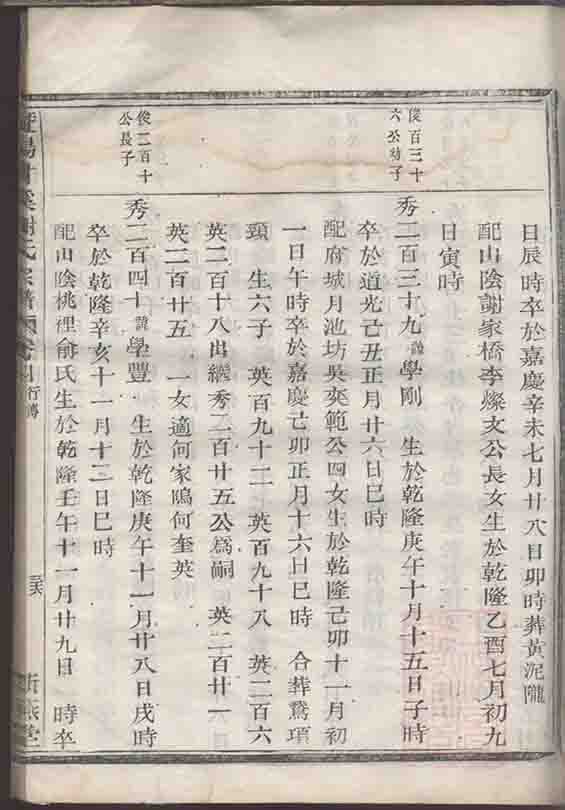 日辰時卒於嘉慶辛未七月廿八日卯時葬黃泥隴
配山陰謝家橋李燦文公長女生於乾隆乙酉七月初九
日寅時
俊百三十
六公幼子
秀二百三十九諱學剛 生於乾隆庚午十月十五日子時
卒於道光己丑正月廿六日巳時
配府城月池坊吳奕範公四女生於乾隆己卯十一月初
一日午時卒於嘉慶己卯正月十六日巳時 合葬鵞項
頸 生六子 英百九十二 英百九十八 英二百六
英二百十八出繼秀二百廿五公為嗣 英二百廿一
英二百廿五 一女適何家隖何奎英
俊二百十
公長子
秀二百四十諱學豐 生於乾隆庚午十一月廿八日戌時
卒於乾隆辛亥十一月十三日巳時
配山陰桃裡俞氏生於乾隆壬午十一月廿九日 時卒
暨陽 溪謝氏宗譜 卷 行傳